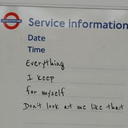 Service information
Date
Time
Everything
I keep
for myself
Don't look at me like that